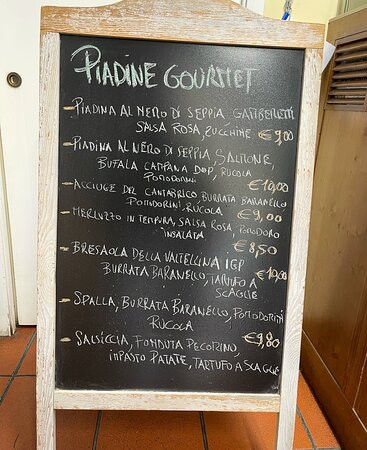 PIADINE GOURMET
- PIADINA AL NERO DI SEPPIA, GAMBERETTI
SALSA ROSA, ZUCCHINE €9,00
- PIADINA AL NERO DI SEPPIA, SALMONE,
BUFALA CAMPANA DOP, RUCOLA
POMODORINI €10,00
- ACCIUGE DEL CANTABRICO, BURRATA BARANELLO
POMODORINI, RUCOLA €9,00
- MERLUZZO IN TEMPURA, SALSA ROSA, POMODORO
INSALATA €8,50
- BRESAOLA DELLA VALTELLINA IGP
BURRATA BARANELLO, TARTUFO A €10,00
SCAGLIE
- SPALLA, BURRATA BARANELLO, POMODORINI
RUCOLA
- SALSICCIA, FONDUTA PECORINO, €9,80
IMPASTO PATATE, TARTUFO A SCAGLIE